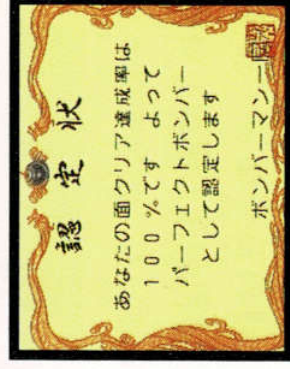 認定状
あなたの面クリア達成率は
100%です よって
パーフェクトボンバー
として認定します
ボンバーマン